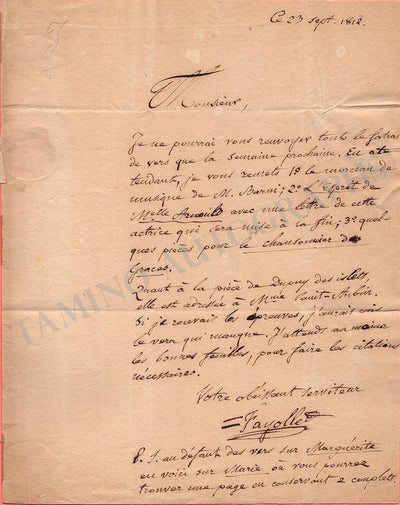 Ce 23 sept. 1812.
Monsieur,
Je ne pourrai vous renvoyer tout le fatras
de vers que la semaine prochaine. En at-
tendant, je vous remets 1º le morceau de
musique de M. Barni; 2º L'Esprit de
Melle Arnould avec une lettre de cette
actrice qui sera mise à la fin; 3º quel-
ques pièces pour le chansonnier des
Graces.
Quant à la pièce de Dupuy des islets,
elle est adressée à Mme Saint-Aubin.
Si je recevais les épreuves, j'aurais mis
le vers qui manque. J'attends au moins
les bonnes feuilles, pour faire les citations
nécessaires.
Votre obéissant serviteur
Fayolle
P. S. au défaut des vers sur Marguérite
en voici sur Marie, où vous pourrez
trouver une page en conservant 2 couplets.
TAMINO AUTOGRAPHS